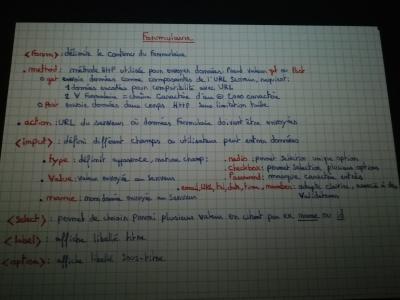 Formulaire
<form> : délimite le contenu du Formulaire
• method : méthode HTTP utilisée pour envoyer données. Prend valeur get ou Post
○ get envoie données comme composantes de l'URL Serveur, requiert :
1 données encodées pour compatibilité avec URL
2 Formulaire = chaîne Caractère d'au 1000 caractère
○ Post envoie données dans corps HTTP Sans limitation taille
• action : URL du serveur où données Formulaire doivent être envoyées
<input> : défini différent champs où utilisateur peut entrer données
• type : définir apparence, nature champ : • radio : permet Sélection unique option
• checkbox : permet Sélection, plusieurs options
• Value : valeur envoyée au Serveur • Password : masque caractère entrés
• email, URL, tel, date, time, number : adapte clavier, associé à des Validations
• name : nom donnée envoyée au Serveur
<select> : permet de choisir Parmi plusieurs valeur en citant par ex name ou id
<label> : affiche libellé titre
<option> : affiche libellé Sous-titre